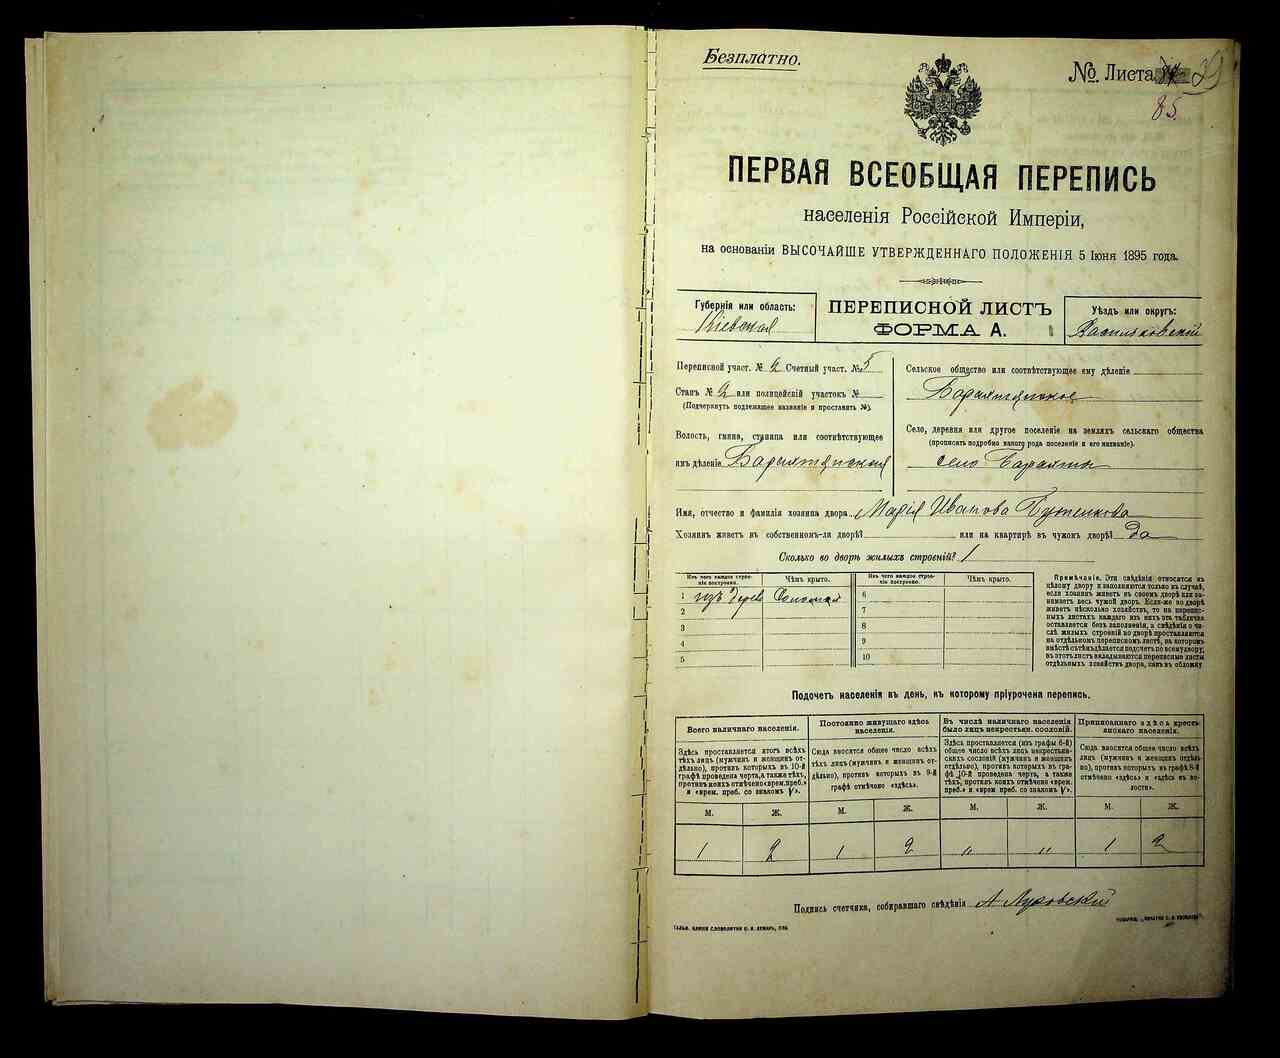 Безплатно.
№ Листа
85.
ПЕРВАЯ ВСЕОБЩАЯ ПЕРЕПИСЬ
населенія Россійской Имперіи,
на основаніи ВЫСОЧАЙШЕ УТВЕРЖДЕННАГО ПОЛОЖЕНІЯ 5 Іюня 1895 года.
Губернія или область:
Кіевская
ПЕРЕПИСНОЙ ЛИСТЪ
ФОРМА А.
Уѣздъ или округъ:
Васильковскій
Переписной участ. № 2 Счетный участ. № 5
Станъ № 2 или полицейскій участокъ №
(Подчеркнуть подлежащее названіе и проставить №).
Волость, гмина, станица или соотвѣтствующее
имъ дѣленіе Барахтянская
Сельское общество или соотвѣтствующее ему дѣленіе
Барахтянское
Село, деревня или другое поселеніе на земляхъ сельскаго общества
(прописать подробно какого рода поселеніе и его названіе).
село Барахты
Имя, отчество и фамилія хозяина двора Марія Иванова
Хозяинъ живетъ въ собственномъ-ли дворѣ? или на квартирѣ въ чужомъ дворѣ? да
Сколько во дворѣ жилыхъ строеній? 1
Изъ чего каждое строеніе построено. Чѣмъ крыто.
1 изъ дерева Соломой
2
3
4
5
Изъ чего каждое строеніе построено. Чѣмъ крыто.
6
7
8
9
10
Примѣчаніе. Эти свѣдѣнія относятся къ
цѣлому двору и заполняются только въ случаѣ,
если хозяинъ живетъ въ своемъ дворѣ или занимаетъ
весь чужой дворъ. Если-же во дворѣ
живетъ нѣсколько хозяйствъ, то на переписныхъ
листахъ каждаго изъ нихъ эта табличка
оставляется безъ заполненія, а свѣдѣнія о числѣ
жилыхъ строеній во дворѣ проставляются
на отдѣльномъ переписномъ листѣ, на которомъ
вмѣстѣ съ тѣмъ дѣлается подсчетъ по всему двору;
въ этотъ листъ вкладываются переписные листы
отдѣльныхъ хозяйствъ двора, какъ въ обложку
Подсчетъ населенія въ день, къ которому пріурочена перепись.
Всего наличнаго населенія.
Здѣсь проставляется итогъ всѣхъ
тѣхъ лицъ (мужчинъ и женщинъ отдѣльно),
противъ которыхъ въ 10-й
графѣ проведена черта, а также тѣхъ,
противъ коихъ отмѣчено «врем. преб.»
и «врем. преб. со знакомъ V».
Постоянно живущаго здѣсь
населенія.
Сюда вносится общее число всѣхъ
тѣхъ лицъ (мужчинъ и женщинъ отдѣльно),
противъ которыхъ въ 9-й
графѣ отмѣчено «здѣсь».
Въ числѣ наличнаго населенія
было лицъ некрестьян. сословій.
Здѣсь проставляется (изъ графы 6-й)
общее число всѣхъ некрестьянскихъ
сословій (мужчинъ и женщинъ
отдѣльно), противъ которыхъ въ графѣ
10-й проведена черта, а также
тѣхъ, противъ коихъ отмѣчено «врем.
преб.» и «врем. преб. со знакомъ V».
Приписаннаго здѣсь крестьянскаго
населенія.
Сюда вносится общее число всѣхъ
лицъ (мужчинъ и женщинъ отдѣльно),
противъ которыхъ въ графѣ 8-й
отмѣчено «здѣсь» и «здѣсь въ волости».
М. Ж. М. Ж. М. Ж. М. Ж.
1 2 1 2 „ „ 1 2
Подпись счетчика, собиравшаго свѣдѣнія